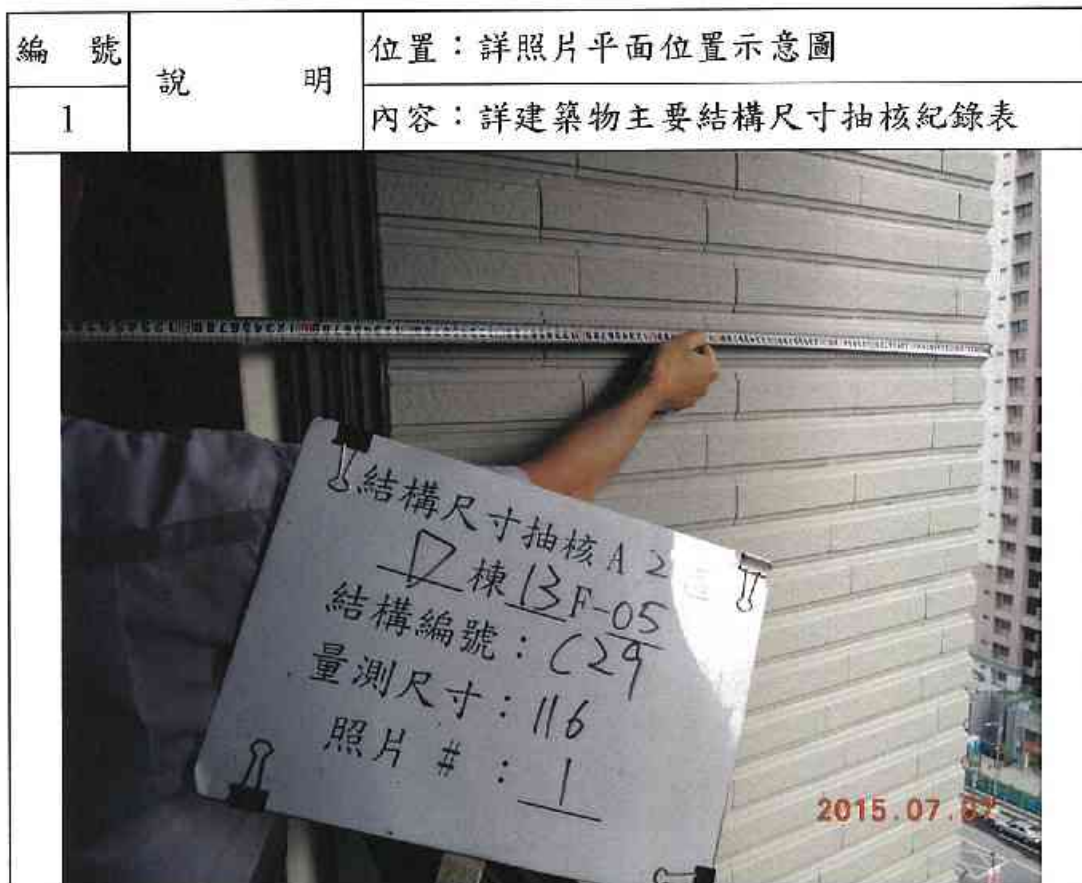 編 號
說 明
位置：詳照片平面位置示意圖
1
內容：詳建築物主要結構尺寸抽核紀錄表
結構尺寸抽核 A 2
D 棟 13 F-05
結構編號：C29
量測尺寸：116
照片 #：1
2015.07.